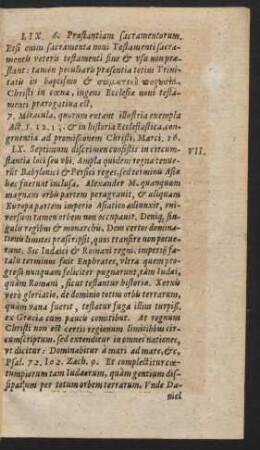 LIX. 6. Præstantiam sacramentorum.
Etsi enim sacramenta noni Testamenti sacra-
mentis veteris testamenti fine & vsu non præ-
stant: tamen peculiaris præsentia totius Trini-
tatis in baptismo & σωματικὴ παρουσία
Christi in cœna, ingens Ecclesiæ noni testa-
menti prærogatiua est.
7. Miracula, quorum extant illustria exempla
Act. 5. 12. 13. & in historia Ecclesiastica, con-
gruentia ad promissionem Christi, Marci, 16.
LX. Septimum discrimen consistit in circum-
VII.
stantia loci seu vbi. Ampla quidem regna tenue-
rūt Babylonici & Persici reges, sed terminis Asiæ
hæc fuerunt inclusa. Alexander M. quanquam
magnam orbis partem peragrauit, & aliquam
Europæ partem imperio Asiatico adiunxit, vni-
uersum tamen orbem non occupauit. Deniq, sin-
gulis regibus & monarchis Deus certos domina-
tionis limites præscripsit, quos transire non potue-
runt. Sic Iudaici & Romani regni, imperij fa-
talis terminus fuit Euphrates, vltra quem pro-
greßi nunquam feliciter pugnarunt, tàm Iudæi,
quàm Romani, sicut testantur historiæ. Xerxis
verò gloriatio, de dominio totius orbis terrarum,
quàm vana fuerit, testatur fuga illius turpiß.
ex Græcia cum paucis comitibus. At regnum
Christi non est certis regionum limitibus cir-
cumscriptum, sed extenditur in omnes nationes,
vt dicitur: Dominabitur à mari ad mare, &c,
Psal. 72. 102. Zach. 9. Et complectitur cœ-
tum piorum tam Iudæorum, quàm gentium dis-
sipatum per totum orbem terrarum. Vnde Da-
niel